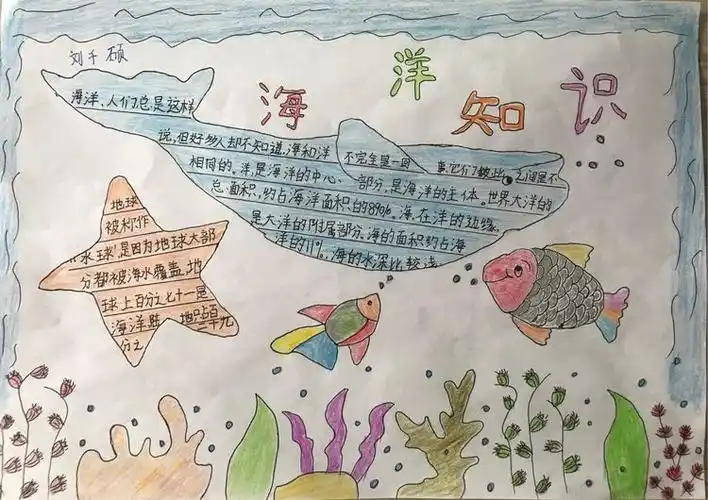 刘千硕
海洋知识
海洋,人们总是这样
说,但好多人却不知道,海和洋不完全是一回事,它们彼此之间是不
相同的。洋,是海洋的中心部分,是海洋的主体。世界大洋的
总面积,约占海洋面积的89%。海,在洋的边缘,
是大洋的附属部分。海的面积约占海
洋的11%,海的水深比较浅
地球
被称作
“水球”是因为地球大部
分都被海水覆盖,地
球上百分之七十一是
海洋,陆地只占百
分之二十九